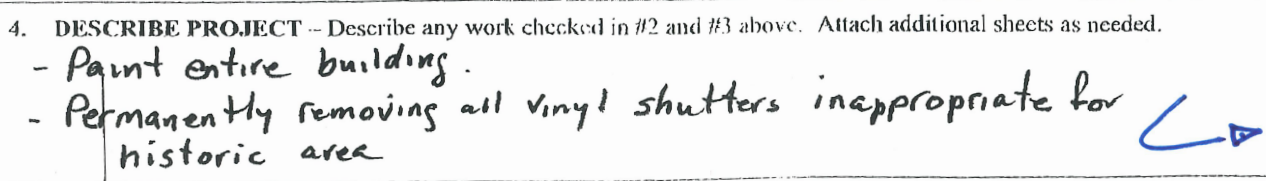 4. DESCRIBE PROJECT -- Describe any work checked in #2 and #3 above. Attach additional sheets as needed.
- Paint entire building.
- Permanently removing all vinyl shutters inappropriate for
historic area